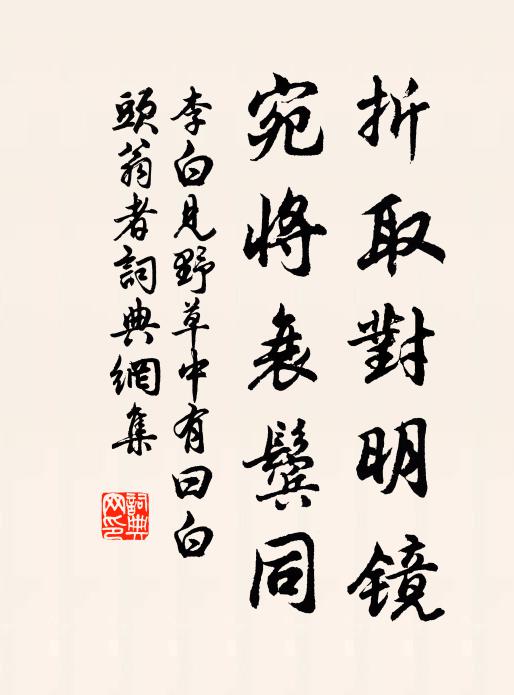 折取對明镜
宛將衰鬢同
李白見野草中有曰白
頭翁者詞典網集
詞典
网印